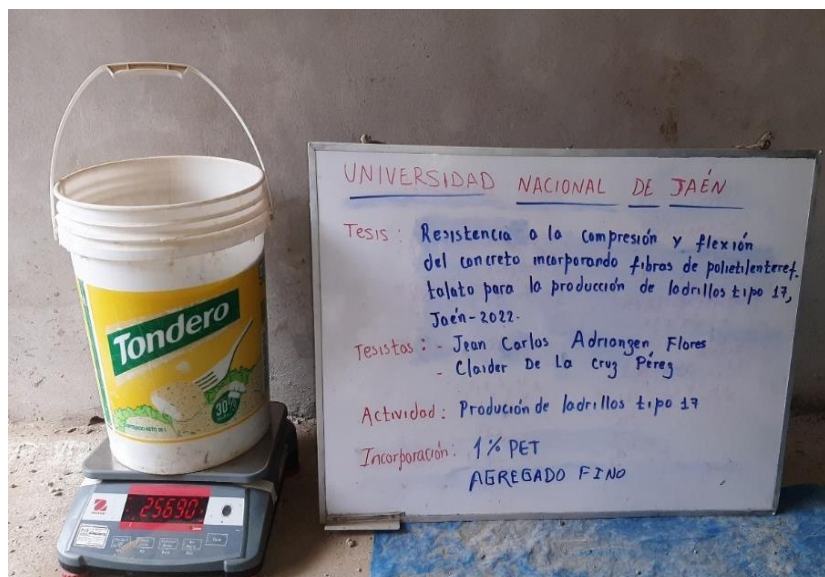 UNIVERSIDAD NACIONAL DE JAÉN
Tesis: Resistencia a la compresión y flexión
del concreto incorporando fibras de polietilenteref-
talato para la producción de ladrillos tipo 17,
Jaén-2022.
Tesistas: - Jean Carlos Adrianzen Flores
- Claider De La Cruz Pérez
Actividad: Produción de ladrillos tipo 17
Incorporación: 1% PET
AGREGADO FINO
Tondero
30%
25690